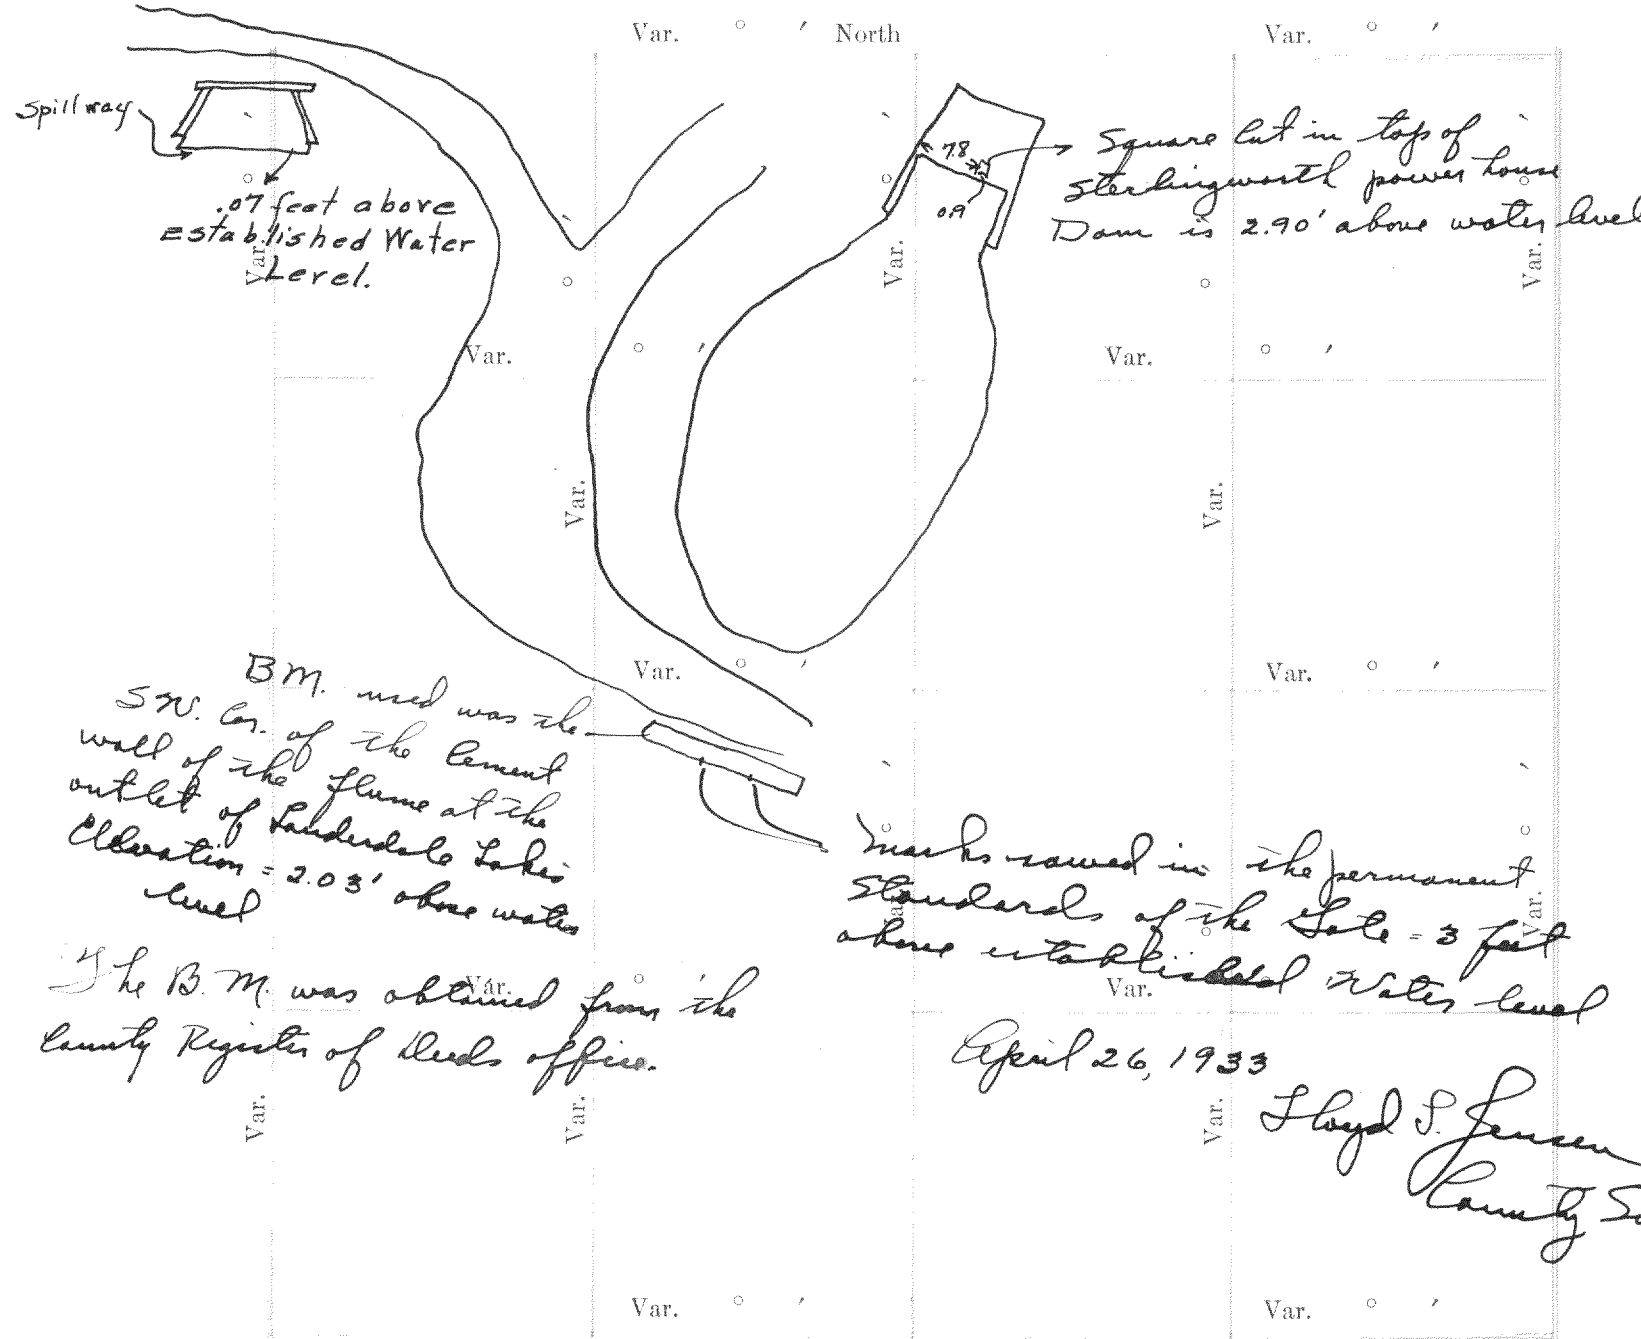 Var. ° ′ North Var. ° ′
Spillway
.07 feet above
Established Water
Level.
7.8
0.9
Square Cut in top of
Sterlingworth power house
Dam is 2.90' above water level
Var.
Var.
Var.
Var. ° ′
Var. ° ′
Var.
Var.
Var. ° ′
Var. ° ′
B M. used was the
S W. Cor. of the Cement
wall of the flume at the
outlet of Lauderdale Lakes
Elevation = 2.03' above water
level
Marks sawed in the permanent
Standards of the Gate = 3 feet
above established Water level
Var.
Var.
The B. M. was obtained from the
County Register of Deeds office.
Var. ° ′
Var.
April 26, 1933
Lloyd S. Jensen
County
Var.
Var.
Var.
Var. ° ′
Var. ° ′